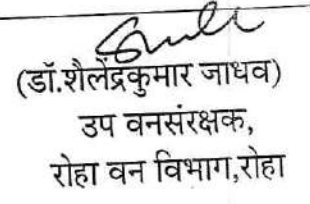 (डॉ.शैलेंद्रकुमार जाधव)
उप वनसंरक्षक,
रोहा वन विभाग,रोहा